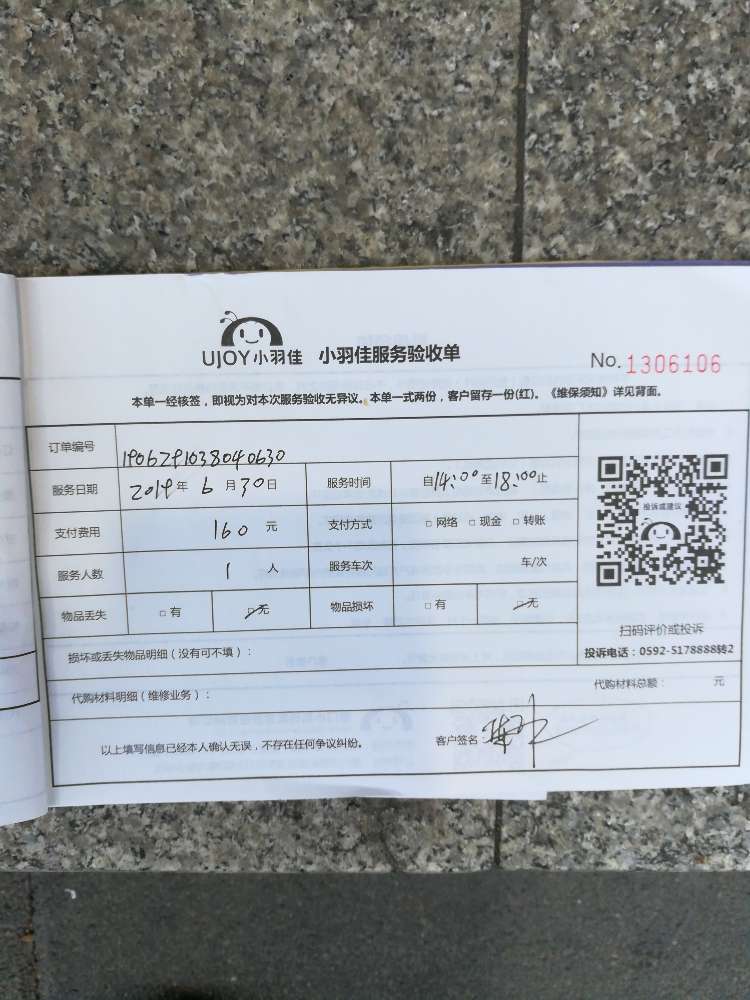 UJOY小羽佳 小羽佳服务验收单
No. 1306106
本单一经核签，即视为对本次服务验收无异议。本单一式两份，客户留存一份(红)。《维保须知》详见背面。
订单编号 1906291038040630
服务日期 2019年 6月30日 服务时间 自14:00至18:00止
支付费用 160 元 支付方式 □ 网络 □ 现金 □ 转账
服务人数 1 人 服务车次 车/次
物品丢失 □ 有 □ 无 物品损坏 □ 有 □ 无
投诉或建议
扫码评价或投诉
投诉电话：0592-5178888转2
损坏或丢失物品明细（没有可不填）：
代购材料明细（维修业务）： 代购材料总额： 元
以上填写信息已经本人确认无误，不存在任何争议纠纷。 客户签名：